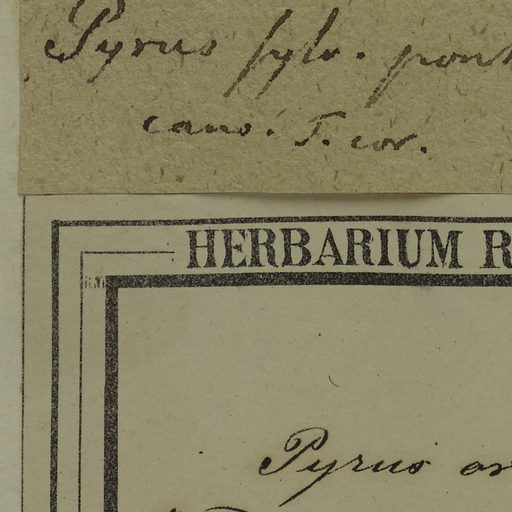 Pyrus sylv. pont
cano. T. cor.
HERBARIUM R
Pyrus or